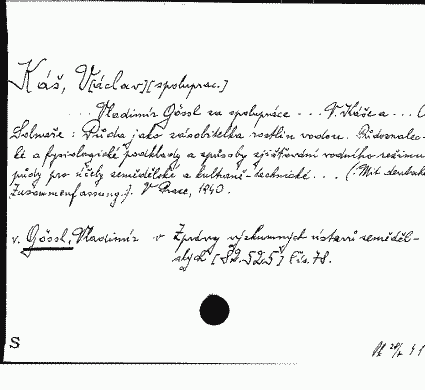 Káš, V[áclav] [spoluprac.]
... Vladimír Gössl za spolupráce ... V. Káše a ...
Solnaře : Půda jako zásobitelka rostlin vodou. Půdoznalec-
ké a fysiologické podklady a způsoby zjišťování vodního režimu
půdy pro účely zemědělské a kulturně-technické ... (Mit deutsch.
Zusammenfassung.). V Praze, 1940.
v. Gössl, Vladimír v Zprávy výzkumných ústavů zeměděl-
ských [82.525] čís. 78.
S